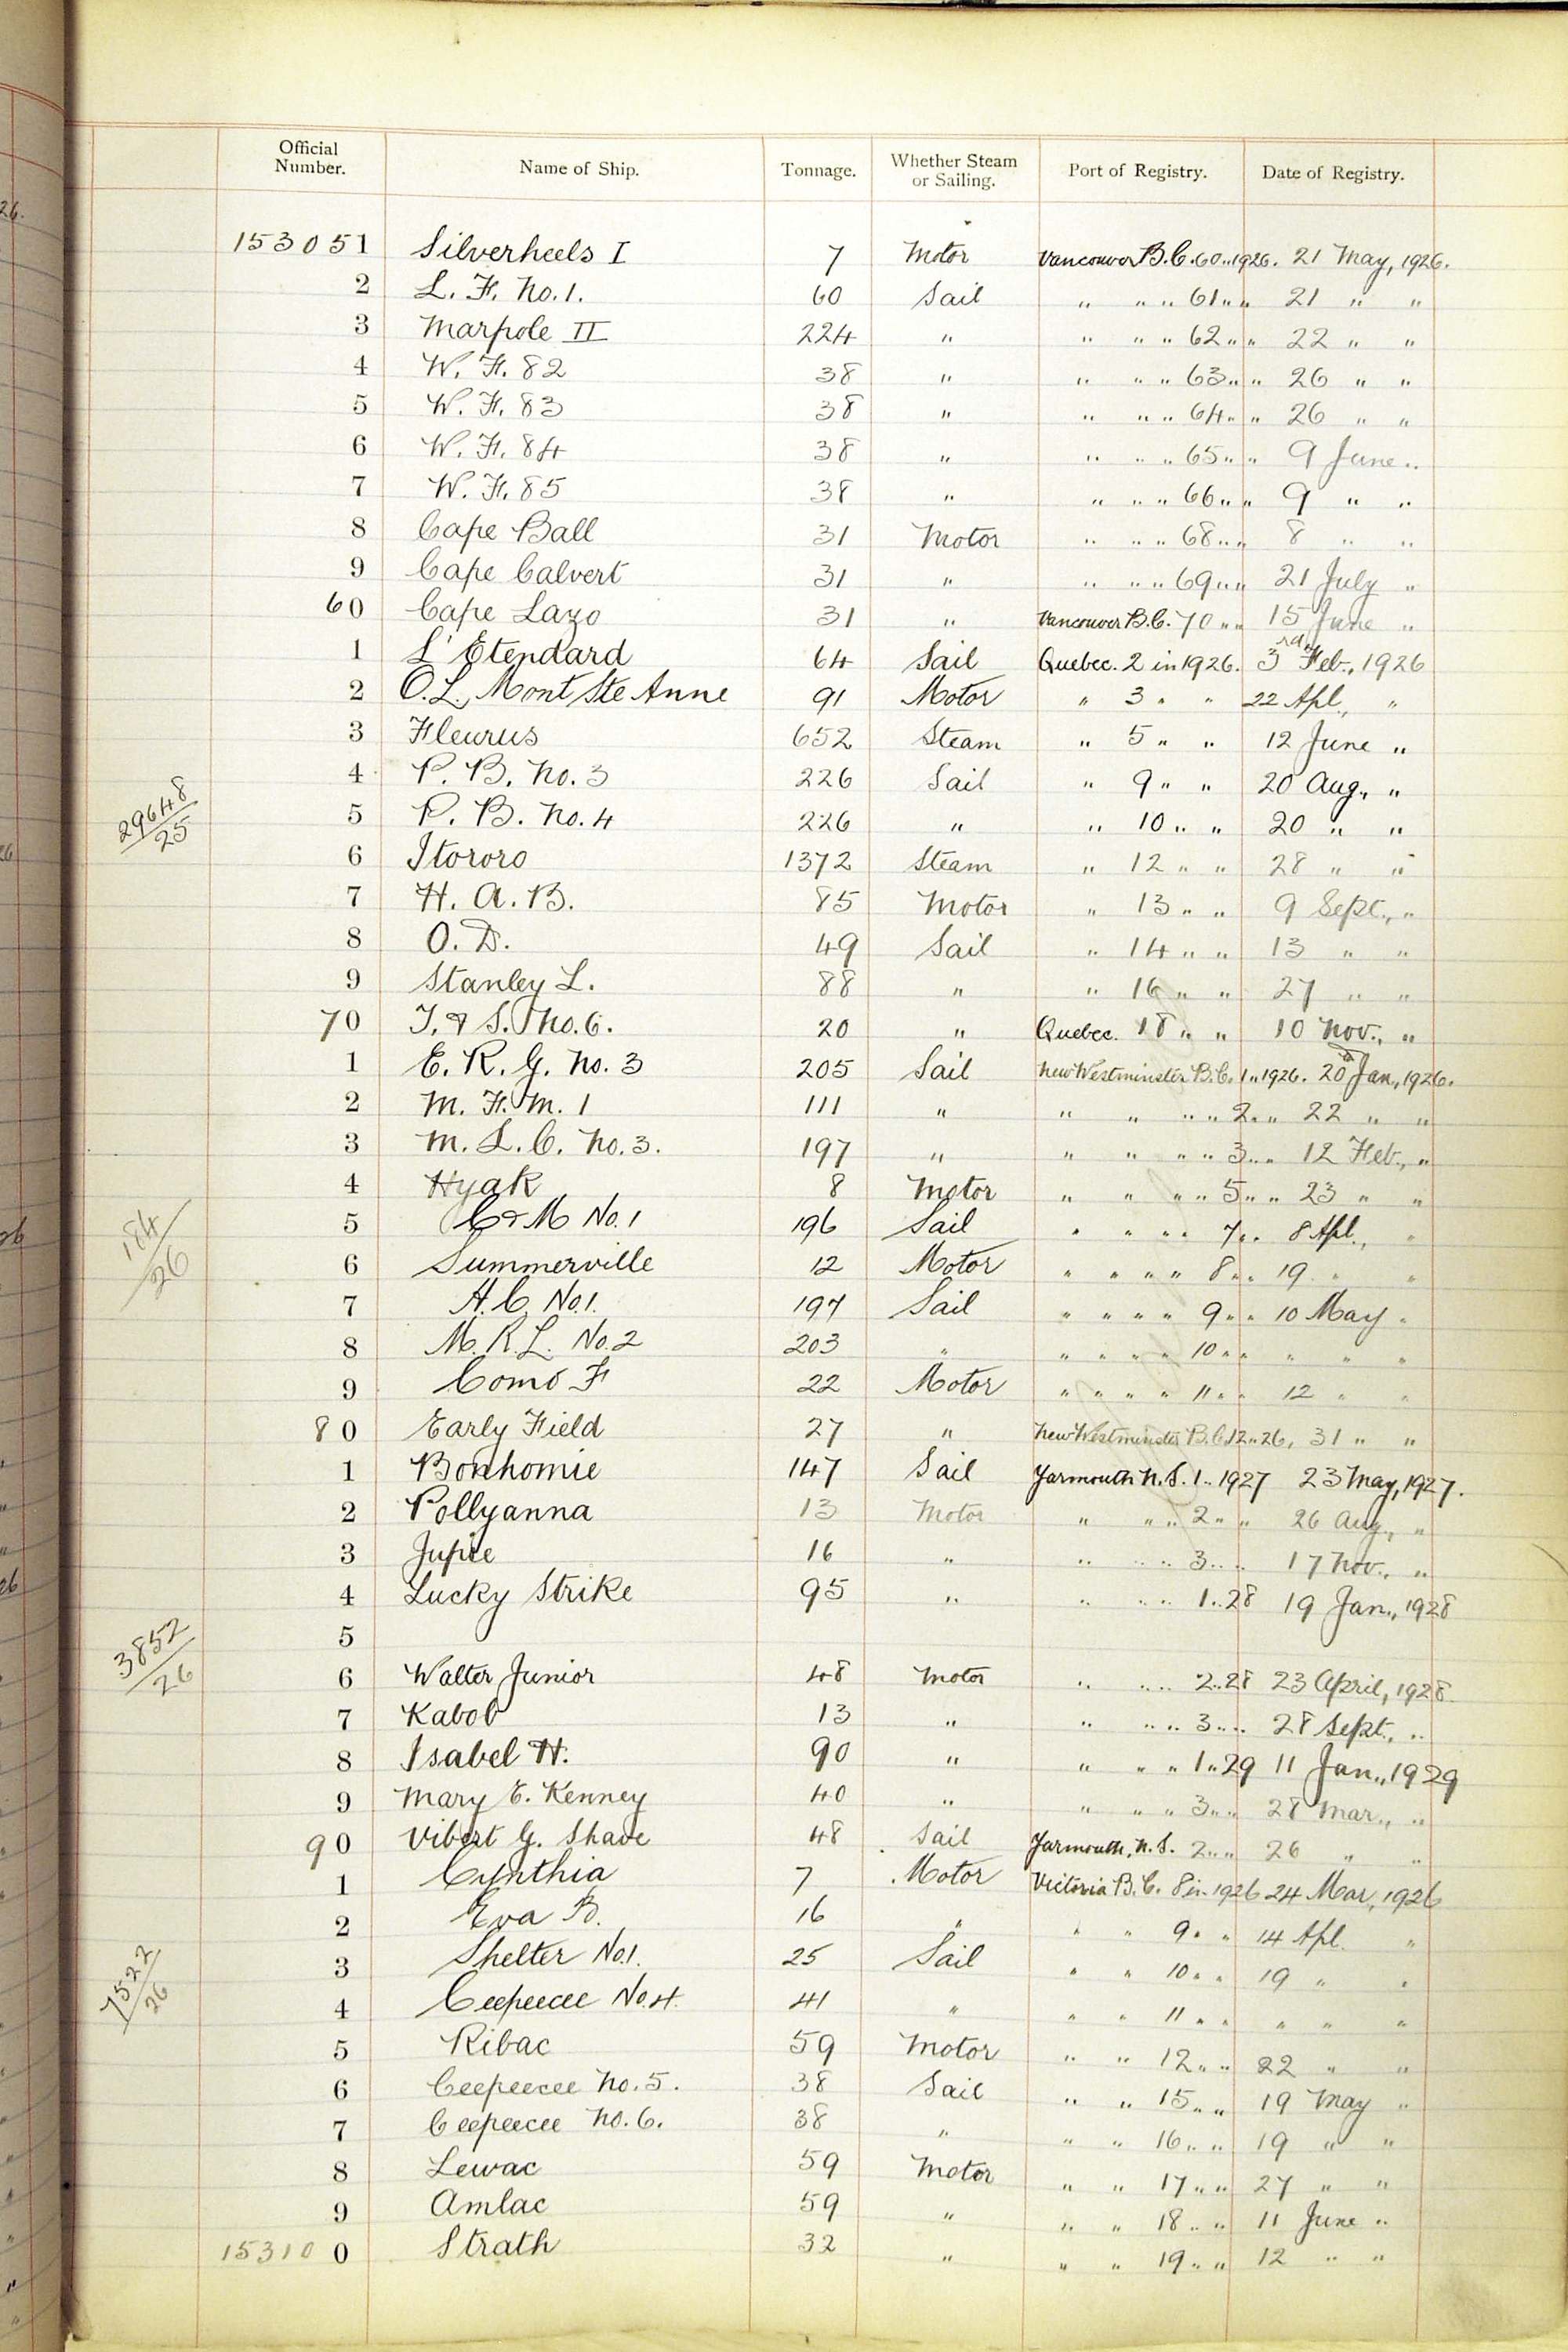 Official Number. Name of Ship. Tonnage. Whether Steam or Sailing. Port of Registry. Date of Registry.
153051 Silverheels I 7 Motor Vancouver B.C. 60 „ 1926. 21 May, 1926.
2 L. F. No. 1. 60 Sail „ „ „ 61 „ „ 21 „ „
3 Marpole II 224 „ „ „ „ 62 „ „ 22 „ „
4 W. F. 82 38 „ „ „ „ 63 „ „ 26 „ „
5 W. F. 83 38 „ „ „ „ 64 „ „ 26 „ „
6 W. F. 84 38 „ „ „ „ 65 „ „ 9 June „
7 W. F. 85 38 „ „ „ „ 66 „ „ 9 „ „
8 Cape Ball 31 Motor „ „ „ 68 „ „ 8 „ „
9 Cape Calvert 31 „ „ „ „ 69 „ „ 21 July „
60 Cape Lazo 31 „ Vancouver B.C. 70 „ „ 15 June „
1 L'Etendard 64 Sail Quebec. 2 in 1926. 3rd Feb., 1926
2 O.L. Mont Ste Anne 91 Motor „ 3 „ „ 22 Apl., „
3 Fleurus 652 Steam „ 5 „ „ 12 June „
4 P. B. No. 3 226 Sail „ 9 „ „ 20 Aug., „
29648/25
5 P. B. No. 4 226 „ „ 10 „ „ 20 „ „
6 Itororo 1372 Steam „ 12 „ „ 28 „ „
7 H. A. B. 85 Motor „ 13 „ „ 9 Sept., „
8 O. D. 49 Sail „ 14 „ „ 13 „ „
9 Stanley L. 88 „ „ 16 „ „ 27 „ „
70 T. & S. No. 6. 20 „ Quebec. 18 „ „ 10 Nov., „
1 E. R. G. No. 3 205 Sail New Westminster B.C. 1 „ 1926. 20th Jan., 1926.
2 M. F. M. 1 111 „ „ „ „ „ 2 „ „ 22 „ „
3 M. L. C. No. 3. 197 „ „ „ „ „ 3 „ „ 12 Feb., „
4 Hyak 8 Motor „ „ „ „ 5 „ „ 23 „ „
184/26
5 C & M No. 1 196 Sail „ „ „ „ 7 „ „ 8 Apl., „
6 Summerville 12 Motor „ „ „ „ 8 „ „ 19 „ „
7 H.C. No. 1. 197 Sail „ „ „ „ 9 „ „ 10 May „
8 M. R. L. No. 2 203 „ „ „ „ „ 10 „ „ „ „ „
9 Como F 22 Motor „ „ „ „ 11 „ „ 12 „ „
80 Early Field 27 „ New Westminster B.C. 12 „ 26, 31 „ „
1 Bonhomie 147 Sail Yarmouth N.S. 1 „ 1927 23 May, 1927.
2 Pollyanna 13 Motor „ „ „ 2 „ „ 26 Aug., „
3 Jupie 16 „ „ „ „ 3 „ „ 17 Nov., „
4 Lucky Strike 95 „ „ „ „ 1 „ 28 19 Jan., 1928
5
3852/26
6 Walter Junior 48 Motor „ „ „ 2 „ 28 23 April, 1928.
7 Kabob 13 „ „ „ „ 3 „ „ 28 Sept., „
8 Isabel H. 90 „ „ „ „ 1 „ 29 11 Jan., 1929
9 Mary E. Kenney 40 „ „ „ „ 3 „ „ 28 Mar., „
90 Vibert G. Shave 48 Sail Yarmouth, N.S. 2 „ „ 26 „ „
1 Cynthia 7 Motor Victoria B.C. 8 in 1926 24 Mar, 1926
2 Eva B. 16 „ „ „ 9 „ „ 14 Apl. „
3 Shelter No. 1. 25 Sail „ „ 10 „ „ 19 „ „
7522/26
4 Ceepeecee No. 4. 41 „ „ „ 11 „ „ „ „ „
5 Ribac 59 Motor „ „ 12 „ „ 22 „ „
6 Ceepeecee No. 5. 38 Sail „ „ 15 „ „ 19 May „
7 Ceepeecee No. 6. 38 „ „ „ 16 „ „ 19 „ „
8 Lewac 59 Motor „ „ 17 „ „ 27 „ „
9 Amlac 59 „ „ „ 18 „ „ 11 June „
153100 Strath 32 „ „ „ 19 „ „ 12 „ „